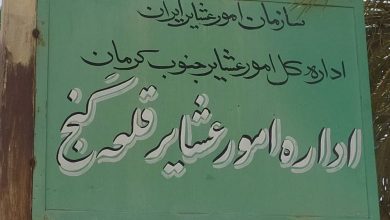 سازمان امور عشایر ایران
اداره کل امور عشایر جنوب کرمان
اداره امور عشایر قلعه گنج